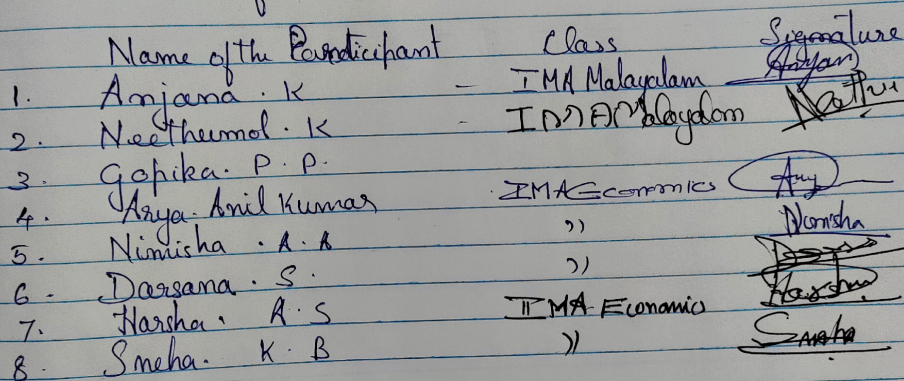 Name of the Pandicipant Class Signature
1. Anjana. K - I MA Malayalam Anjana
2. Neethumol. K - I MA Malayalam Neethu
3. Gopika. P. P.
4. Arya. Anil Kumar I MA Economics
5. Nimisha. A. A ,, Nimisha
6. Darsana. S. ,,
7. Harsha. A. S II MA Economic Harsha
8. Sneha. K. B ,, Sneha